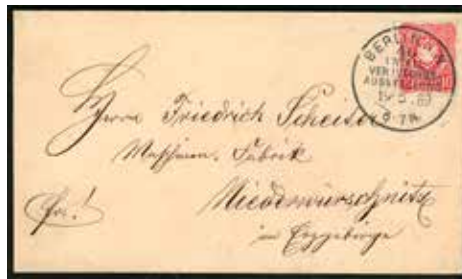 BERLIN N.W.
VERHÜTUNGS
AUSSTELLUNG
Herrn Friedrich Scheiser
Maschinen-Fabrik
Niederwürschnitz
im Erzgebirge